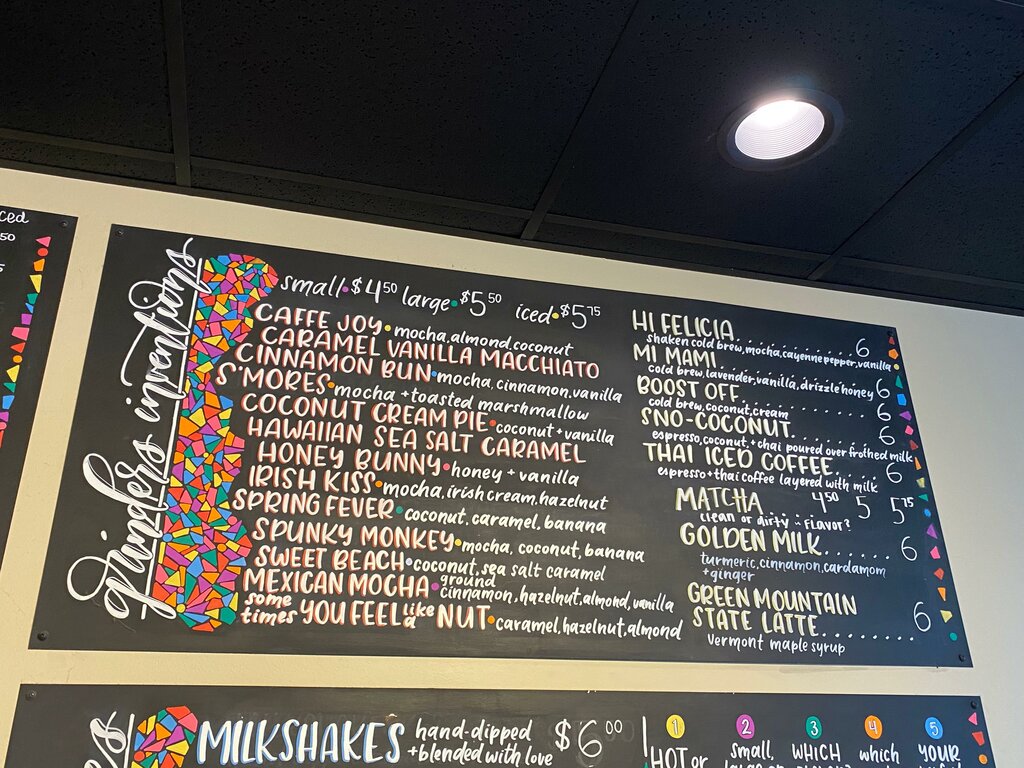 ced
50
5
grinder's inventions
small • $4 50 large • $5 50 iced • $5 75
CAFFE JOY • mocha, almond, coconut
CARAMEL VANILLA MACCHIATO
CINNAMON BUN • mocha, cinnamon, vanilla
S'MORES • mocha + toasted marshmallow
COCONUT CREAM PIE • coconut + vanilla
HAWAIIAN SEA SALT CARAMEL
HONEY BUNNY • honey + vanilla
IRISH KISS • mocha, irish cream, hazelnut
SPRING FEVER • coconut, caramel, banana
SPUNKY MONKEY • mocha, coconut, banana
SWEET BEACH • coconut, sea salt caramel
MEXICAN MOCHA • ground cinnamon, hazelnut, almond, vanilla
some times YOU FEEL like a NUT • caramel, hazelnut, almond
HI FELICIA ............ 6
shaken cold brew, mocha, cayenne pepper, vanilla
MI MAMI ............ 6
cold brew, lavender, vanilla, drizzle honey
BOOST OFF ............ 6
cold brew, coconut, cream
SNO-COCONUT ............ 6
espresso, coconut + chai poured over frothed milk
THAI ICED COFFEE ...... 6
espresso + thai coffee layered with milk
MATCHA 4 50 5 5 75
clean or dirty - FLAVOR?
GOLDEN MILK ........ 6
turmeric, cinnamon, cardamom
+ ginger
GREEN MOUNTAIN
STATE LATTE ........ 6
Vermont maple syrup
MILKSHAKES hand-dipped $6 00
+ blended with love
1 2 3 4 5
HOT or small, WHICH which YOUR